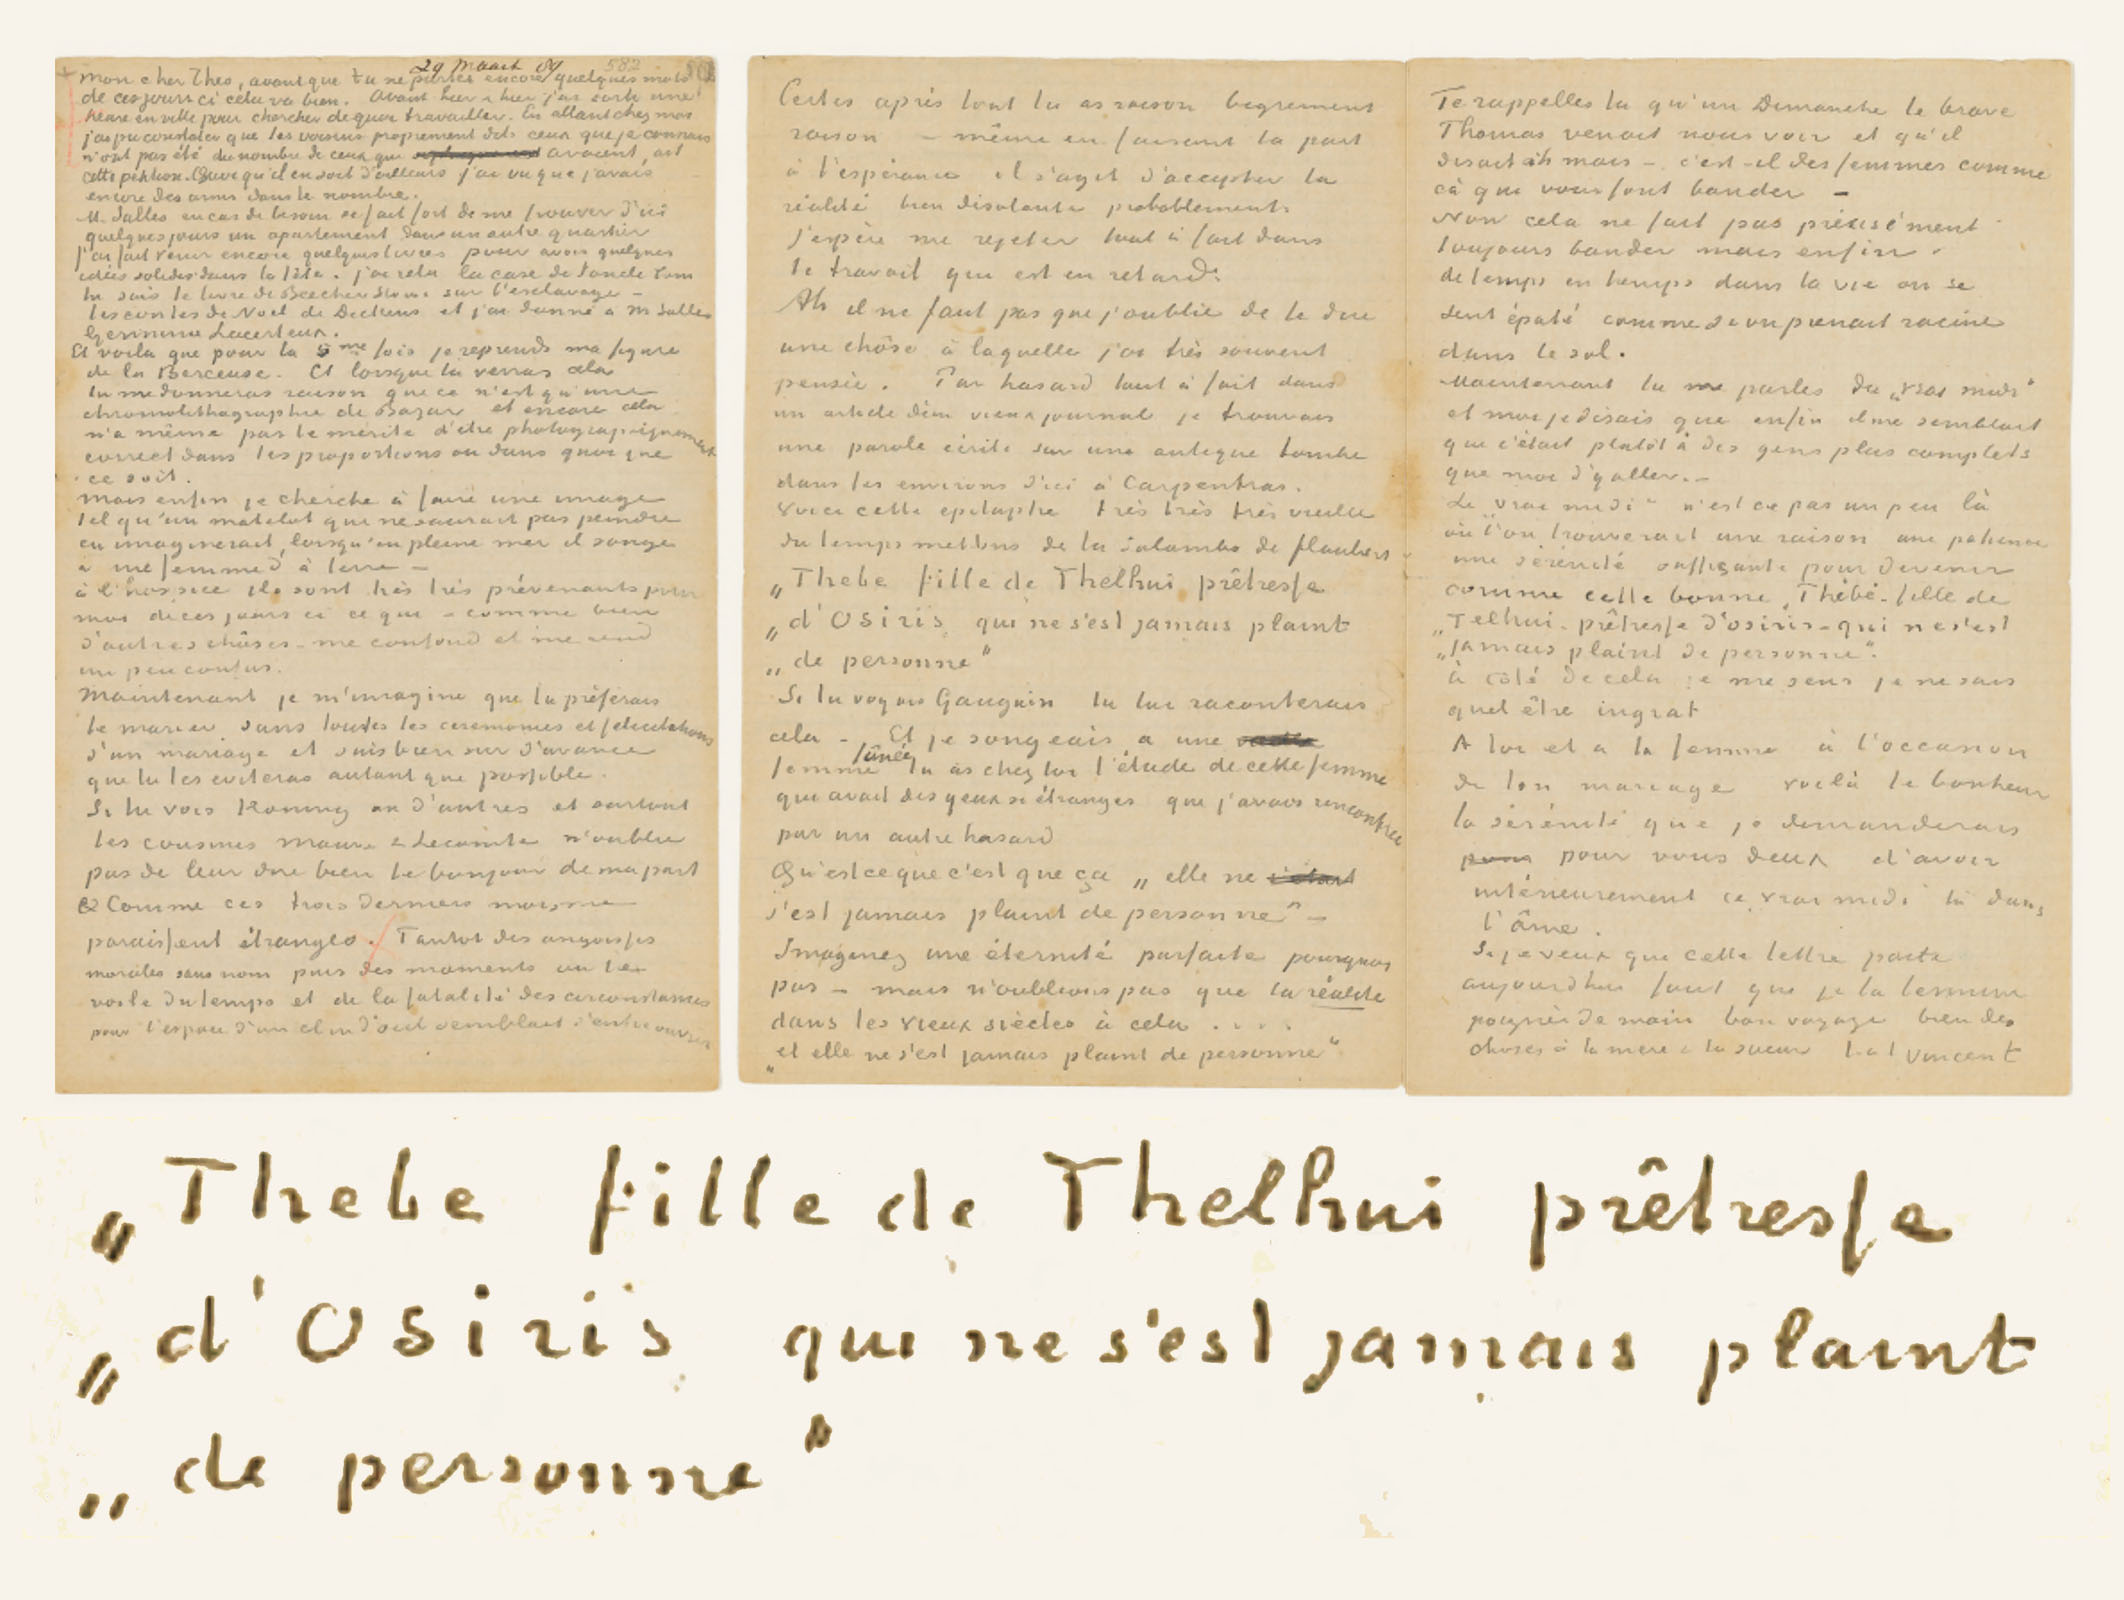 29 Maart 89
582
Mon cher Theo, avant que tu ne partes encore quelques mots
de ces jours ci cela va bien. Avant hier & hier j'ai sorti une
heure en ville pour chercher de quoi travailler. En allant chez moi
j'ai pu constater que les voisins proprement dits ceux que je connais
n'ont pas été du nombre de ceux qui avaient fait
cette pétition. Quoi qu'il en soit d'ailleurs j'ai vu que j'avais
encore des amis dans le nombre.
M. Salles en cas de besoin se fait fort de me trouver d'ici
quelques jours un apartement dans un autre quartier
J'ai fait venir encore quelques livres pour avoir quelques
idées solides dans la tête. j'ai relu la case de l'oncle Tom
tu sais le livre de Beecher Stowe sur l'esclavage –
les contes de Noel de Dickens et j'ai donné à M Salles
Germinie Lacerteux.
Et voila que pour la 5me fois je reprends ma figure
de la Berceuse. Et lorsque tu verras cela
tu me donneras raison que ce n'est qu'une
chromolithographie de Bazar et encore cela
n'a même pas le mérite d'etre photographiquement
correct dans les proportions ou dans quoi que
ce soit.
Mais enfin je cherche à faire une image
tel qu'un matelot qui ne saurait pas peindre
en imaginerait lorsqu'en pleine mer il songe
à une femme d à terre –
à l'hospice ils sont très très prévenants pour
moi de ces jours ci ce qui – comme bien
d'autres chôses – me confond et me rend
un peu confus.
Maintenant je m'imagine que tu préférais
te marier sans toutes les ceremonies et felicitations
d'un mariage et suis bien sur d'avance
que tu les eviteras autant que possible.
Si tu vois Koning ou d'autres et surtout
les cousines Mauve & Lecomte n'oublie
pas de leur dire bien le bonjour de ma part
& Comme ces trois derniers mois me
paraissent étranges. Tantot des angoisses
morales sans nom puis des moments ou le
voile du temps et de la fatalité des circonstances
pour l'espace d'un clin d'oeil semblait s'entreouvrir
Certes après tout tu as raison bigrement
raison – même en faisant la part
à l'espérance il s'agit d'accepter la
réalité bien désolante probablement.
J'espère me rejeter tout à fait dans
le travail qui est en retard.
Ah il ne faut pas que j'oublie de te dire
une chôse à laquelle j'ai très souvent
pensée. Par hasard tout à fait dans
un article d'un vieux journal je trouvais
une parole écrite sur une antique tombe
dans les environs d'ici à Carpentras.
Voici cette epitaphe très très très vieille
du temps mettons de la Salambo de flaubert
„Thebe fille de Thelhui prêtresse
„d'Osiris qui ne s'est jamais plaint
„de personne"
Si tu voyais Gauguin tu lui raconterais
cela – Et je songeais à une
femme fânée tu as chez toi l'étude de cette femme
qui avait des yeux si étranges que j'avais rencontree
par un autre hasard
Qu'est ce que c'est que ça „elle ne
s'est jamais plaint de personne" –
Imaginez une éternité parfaite pourquoi
pas – mais n'oublions pas que la réalité
dans les vieux siècles à cela ....
„et elle ne s'est jamais plaint de personne"
Te rappelles tu qu'un Dimanche le brave
Thomas venait nous voir et qu'il
disait ah mais – c'est-il des femmes comme
cà qui vous font bander –
Non cela ne fait pas précisément
toujours bander mais enfin .
de temps en temps dans la vie on se
sent épaté comme si on prenait racine
dans le sol.
Maintenant tu me parles du „vrai midi"
et moi je disais que enfin il me semblait
que c'était plutôt à des gens plus complets
que moi d'y aller. –
Le „vrai midi" n'est ce pas un peu là
où l'on trouverait une raison une patience
une sérénité suffisante pour devenir
comme cette bonne „Thébé – fille de
„Telhui – prêtresse d'osiris – qui ne s'est
„jamais plaint de personne".
à côté de cela je me sens je ne sais
quel être ingrat
A toi et a ta femme à l'occasion
de ton mariage voilà le bonheur
la sérénité que je demanderais
pour vous deux d'avoir
intérieurement ce vrai midi là dans
l'âme.
Si je veux que cette lettre parte
aujourdhui faut que je la termine
poignée de main bon voyage bien des
choses à la mère & la soeur t. à t. Vincent
„Thebe fille de Thelhui prêtresse
„d'Osiris qui ne s'est jamais plaint
„de personne"